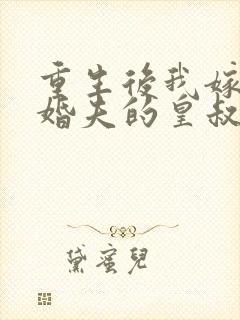 重生後我嫁
婚夫的皇叔
黛蜜兒